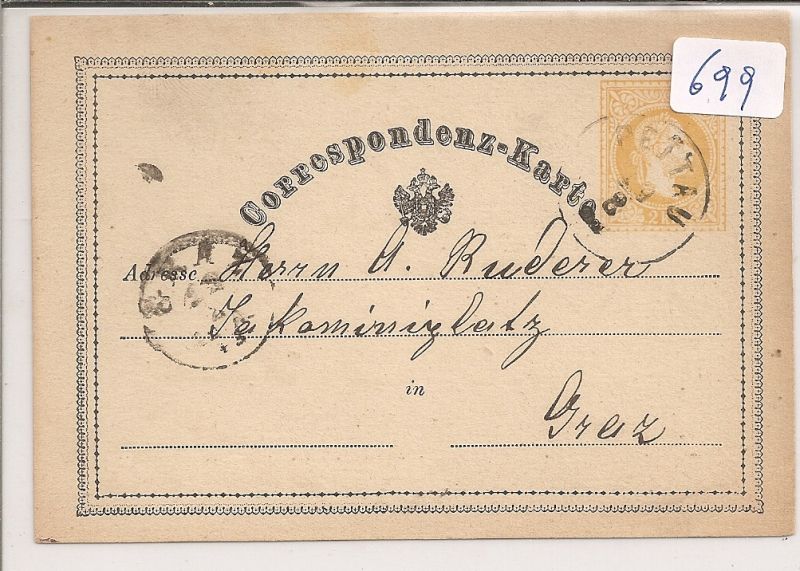 699
Correspondenz-Karte
PETTAU
Adresse Herrn A. Ruderer
Jakominiplatz
in
Graz